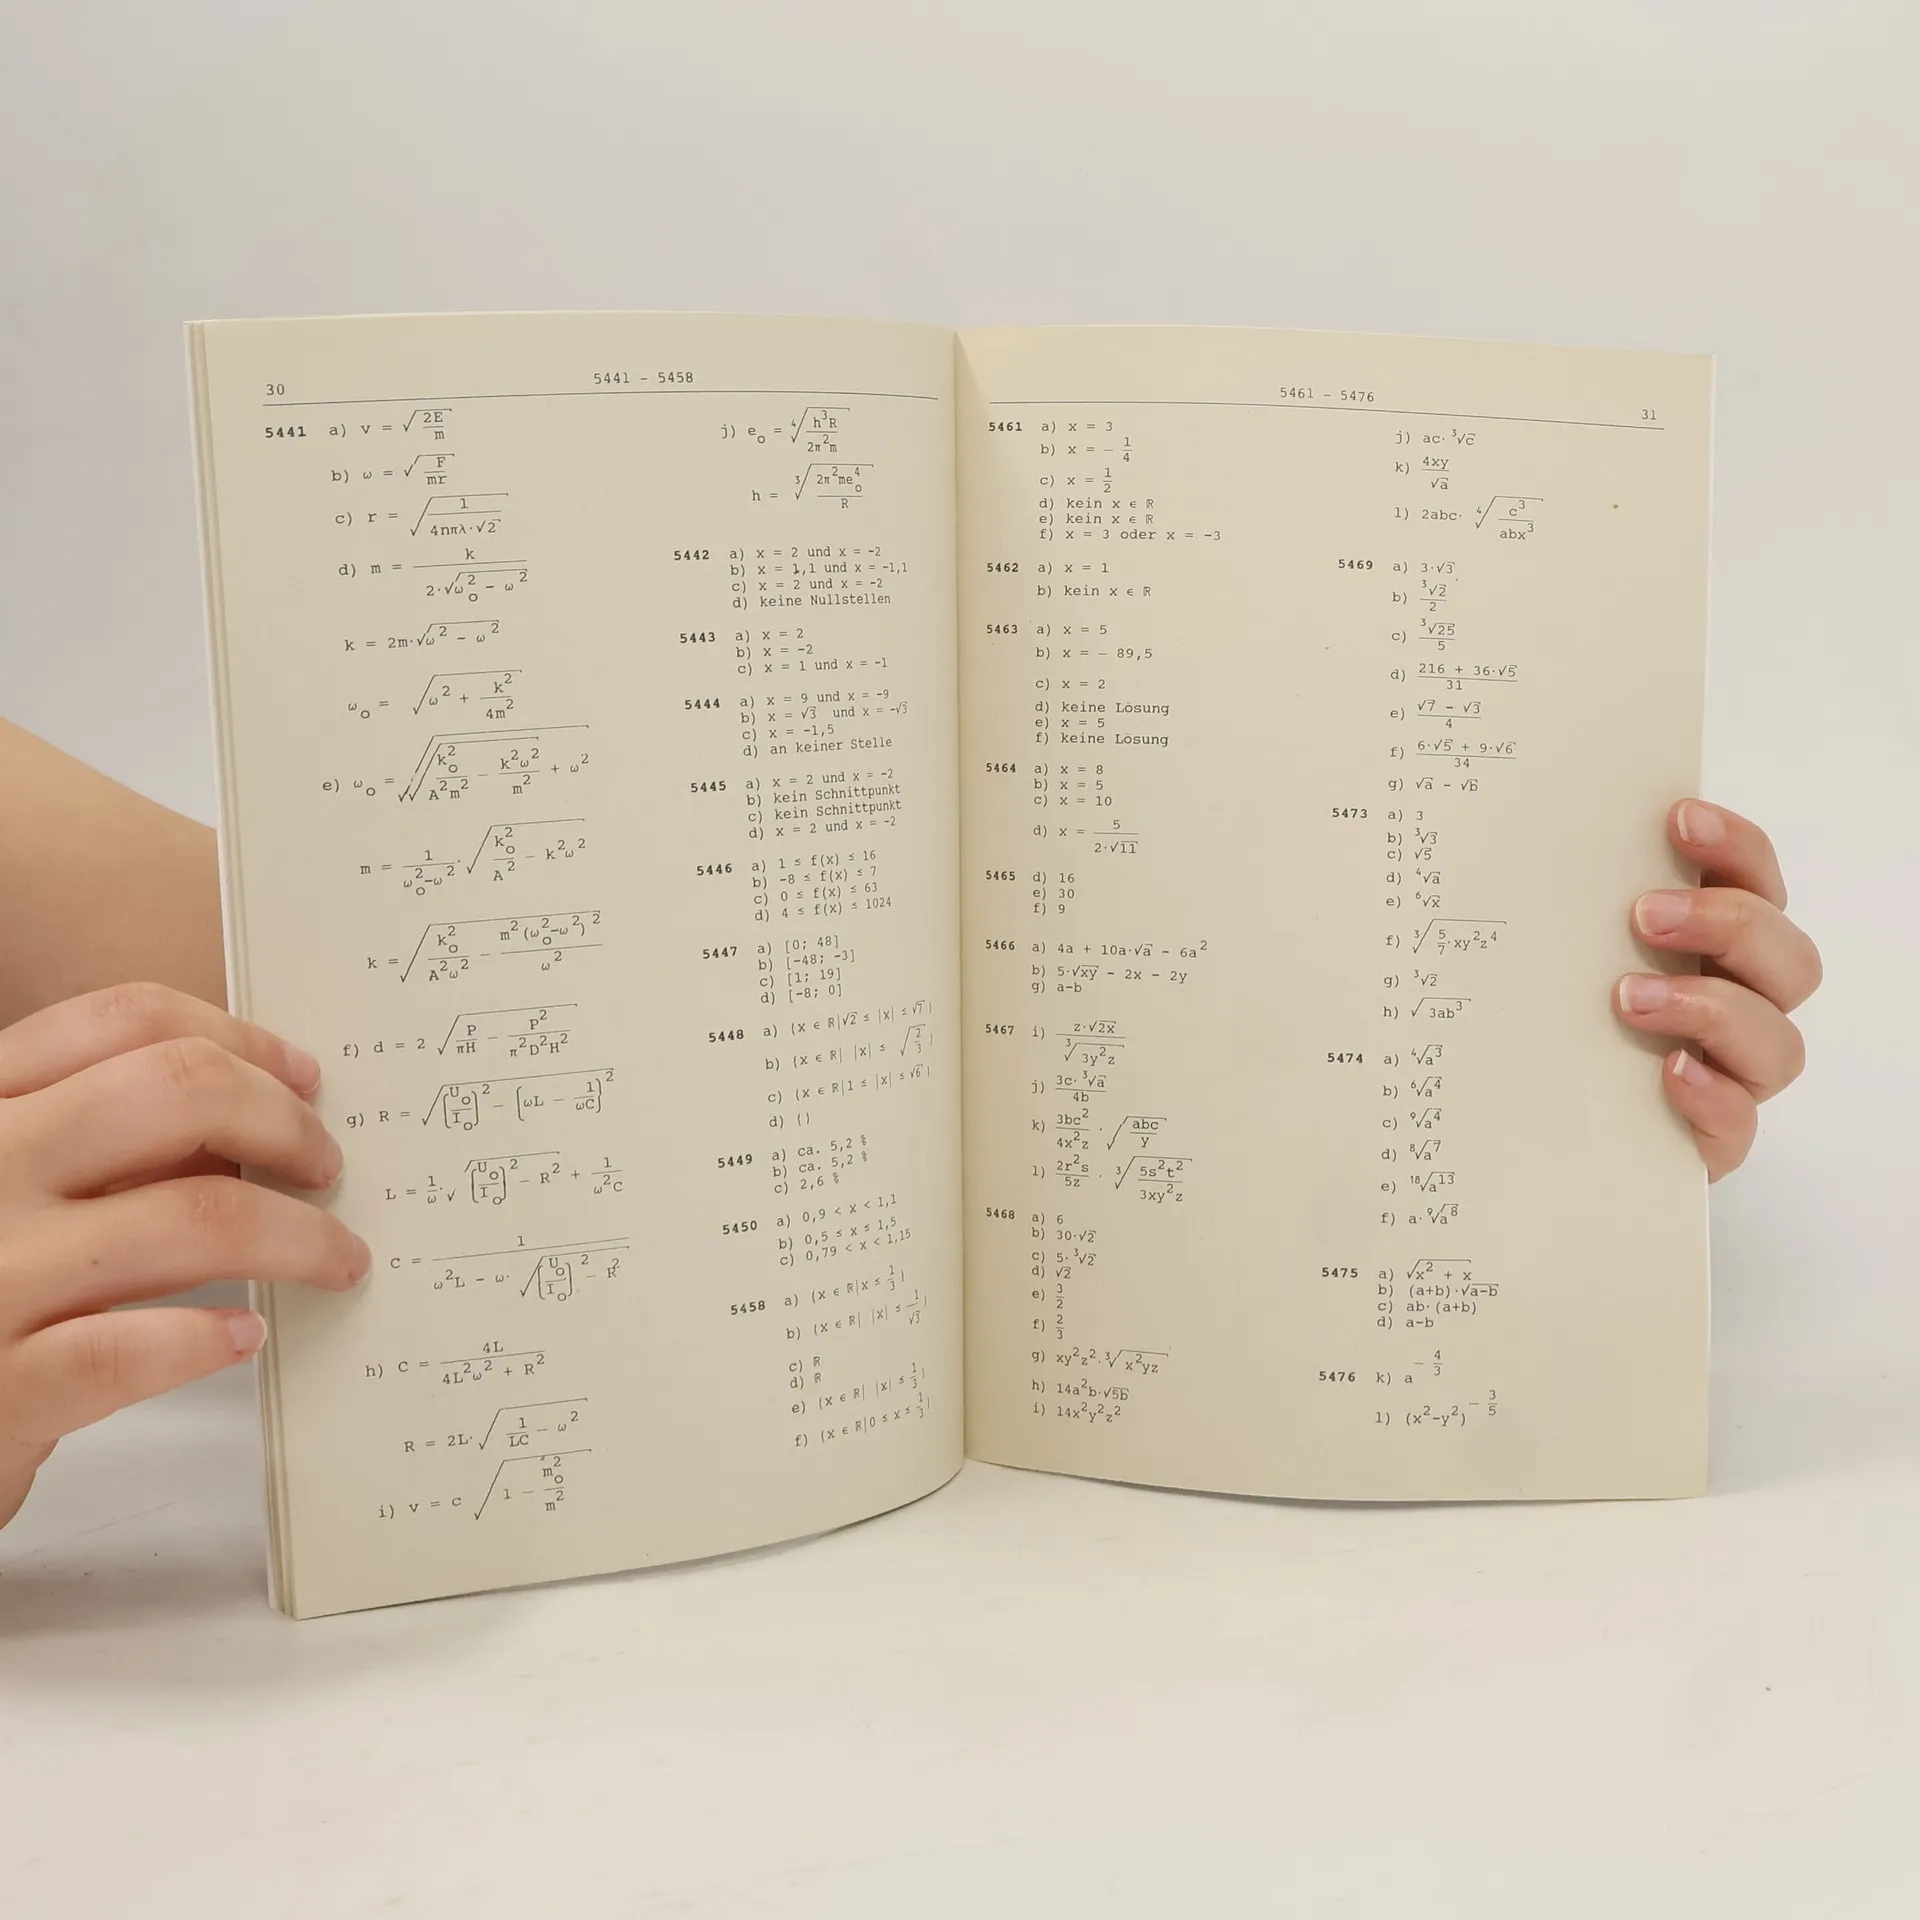 30
5441 - 5458
5441 a) v = √(2E/m)
b) ω = √(F/mr)
c) r = √(1/(4nπλ·√2))
d) m = k/(2·√(ω₀² - ω²))
k = 2m·√(ω² - ω²)
ω₀ = √(ω² + k²/4m²)
e) ω₀ = √(√(k₀²/A²m² - k²ω²/m²) + ω²)
m = 1/(ω₀²-ω²)·√(k₀²/A² - k²ω²)
k = √(k₀²/A²ω² - m²(ω₀²-ω²)²/ω²)
f) d = 2 √(P/πH - P²/π²D²H²)
g) R = √((U₀/I₀)² - (ωL - 1/ωC)²)
L = 1/ω·√((U₀/I₀)² - R²) + 1/ω²C
C = 1/(ω²L - ω·√((U₀/I₀)² - R²))
h) C = 4L/(4L²ω² + R²)
R = 2L·√(1/LC - ω²)
i) v = c √(1 - m₀²/m²)
j) e₀ = ⁴√(h³R/2π²m)
h = ³√(2π²me₀⁴/R)
5442 a) x = 2 und x = -2
b) x = 1,1 und x = -1,1
c) x = 2 und x = -2
d) keine Nullstellen
5443 a) x = 2
b) x = -2
c) x = 1 und x = -1
5444 a) x = 9 und x = -9
b) x = √3 und x = -√3
c) x = -1,5
d) an keiner Stelle
5445 a) x = 2 und x = -2
b) kein Schnittpunkt
c) kein Schnittpunkt
d) x = 2 und x = -2
5446 a) 1 ≤ f(x) ≤ 16
b) -8 ≤ f(x) ≤ 7
c) 0 ≤ f(x) ≤ 63
d) 4 ≤ f(x) ≤ 1024
5447 a) [0; 48]
b) [-48; -3]
c) [1; 19]
d) [-8; 0]
5448 a) {x ∈ ℝ|√2 ≤ |x| ≤ √7}
b) {x ∈ ℝ| |x| ≤ √(2/3)}
c) {x ∈ ℝ|1 ≤ |x| ≤ √6}
d) {}
5449 a) ca. 5,2 %
b) ca. 5,2 %
c) 2,6 %
5450 a) 0,9 < x < 1,1
b) 0,5 ≤ x ≤ 1,5
c) 0,79 < x < 1,15
5458 a) {x ∈ ℝ|x ≤ 1/3}
b) {x ∈ ℝ| |x| ≤ 1/√3}
c) ℝ
d) ℝ
e) {x ∈ ℝ| |x| ≤ 1/3}
f) {x ∈ ℝ|0 ≤ x ≤ 1/3}
5461 - 5476
31
5461 a) x = 3
b) x = - 1/4
c) x = 1/2
d) kein x ∈ ℝ
e) kein x ∈ ℝ
f) x = 3 oder x = -3
5462 a) x = 1
b) kein x ∈ ℝ
5463 a) x = 5
b) x = - 89,5
c) x = 2
d) keine Lösung
e) x = 5
f) keine Lösung
5464 a) x = 8
b) x = 5
c) x = 10
d) x = 5/(2·√11)
5465 d) 16
e) 30
f) 9
5466 a) 4a + 10a·√a - 6a²
b) 5·√xy - 2x - 2y
g) a-b
5467 i) z·√2x/³√(3y²z)
j) 3c·³√a/4b
k) 3bc²/4x²z · √(abc/y)
l) 2r²s/5z · ³√(5s²t²/3xy²z)
5468 a) 6
b) 30·√2
c) 5·³√2
d) √2
e) 3/2
f) 2/3
g) xy²z²·³√(x²yz)
h) 14a²b·√5b
i) 14x²y²z²
j) ac·³√c
k) 4xy/√a
l) 2abc· ⁴√(c³/abx³)
5469 a) 3·√3
b) ³√2/2
c) ³√25/5
d) (216 + 36·√5)/31
e) (√7 - √3)/4
f) (6·√5 + 9·√6)/34
g) √a - √b
5473 a) 3
b) ³√3
c) √5
d) ⁴√a
e) ⁶√x
f) ³√(5/7·xy²z⁴)
g) ³√2
h) √(3ab³)
5474 a) ⁴√a³
b) ⁶√a⁴
c) ⁹√a⁴
d) ⁸√a⁷
e) ¹⁸√a¹³
f) a·⁹√a⁸
5475 a) √(x² + x)
b) (a+b)·√(a-b)
c) ab·(a+b)
d) a-b
5476 k) a^(-4/3)
l) (x²-y²)^(-3/5)